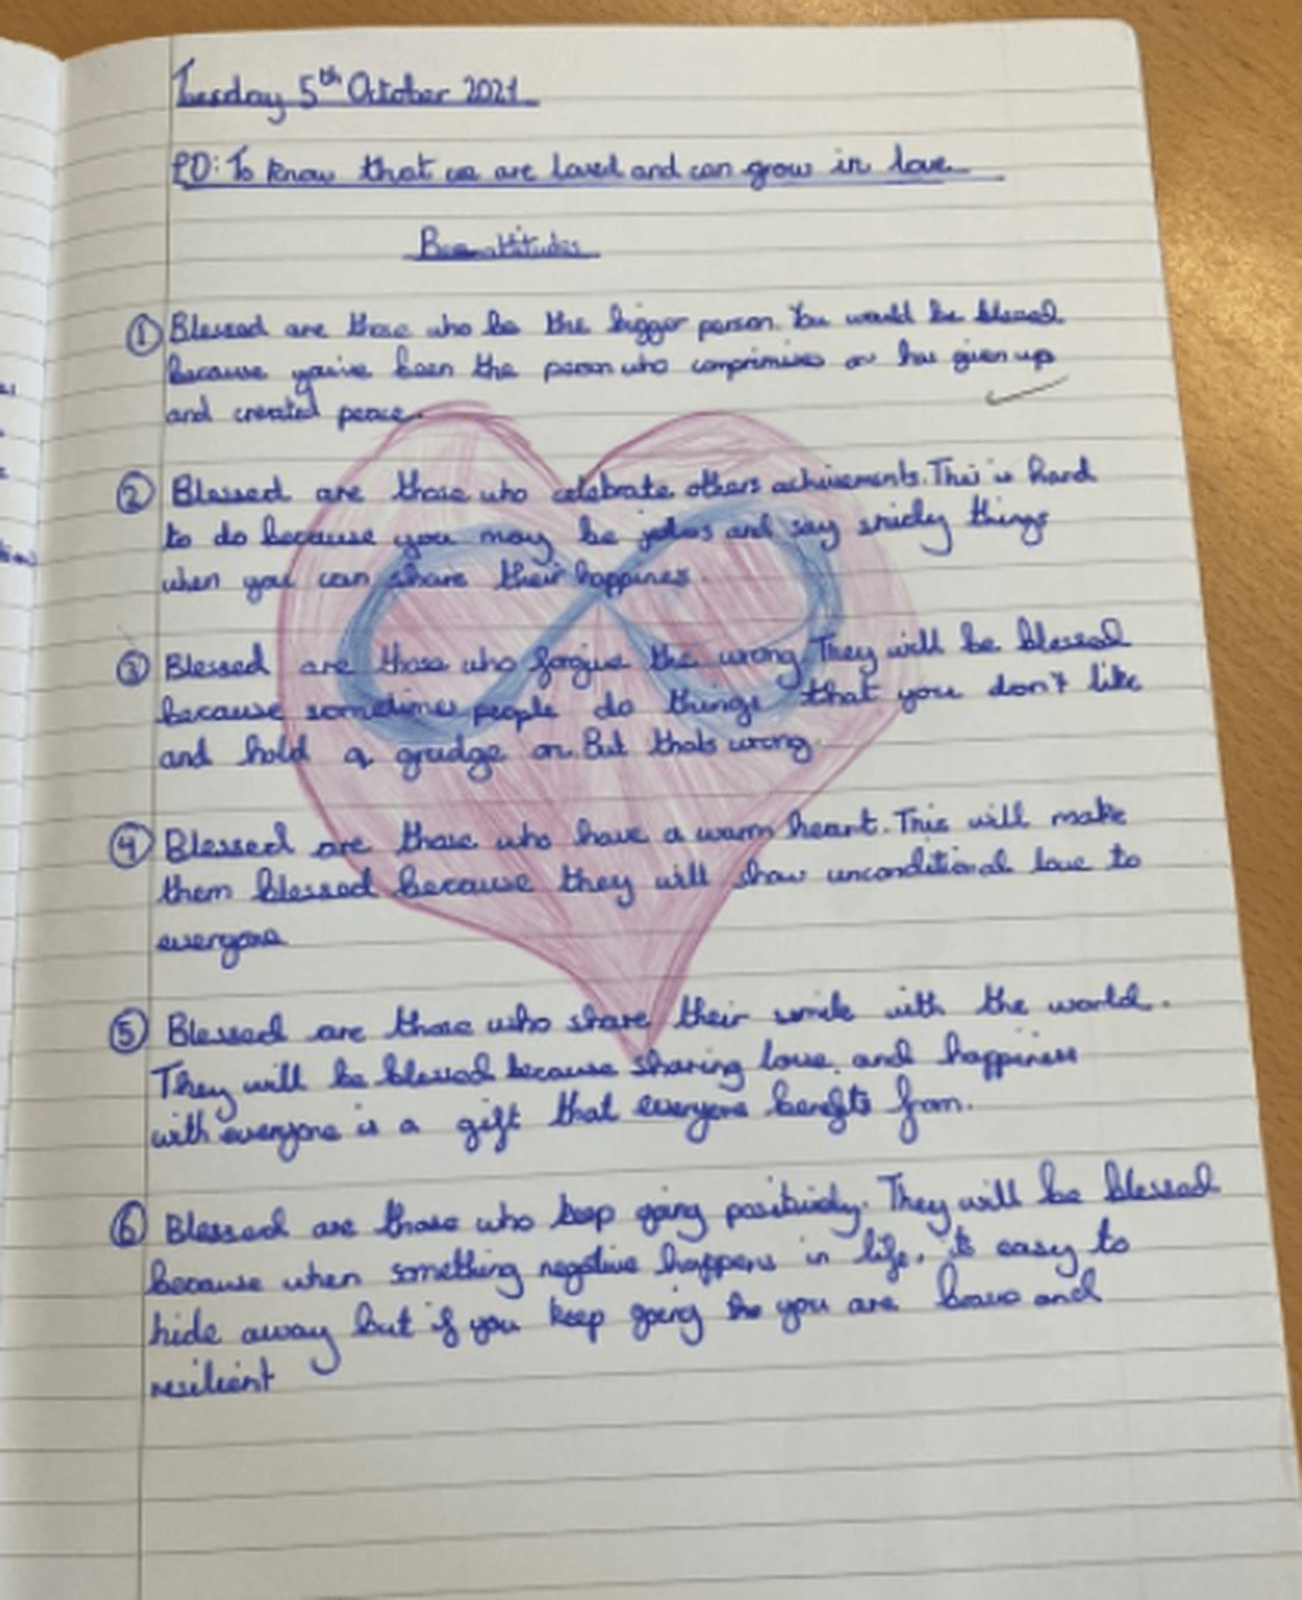 Tuesday 5th October 2021
LO: To know that we are loved and can grow in love
Beeattitudes
① Blessed are those who be the bigger person. You would be blessed
because you've been the person who comprimises or has given up
and created peace.
② Blessed are those who celebrate others achivements. This is hard
to do because you may be jelos and say snidey things
when you can share their happiness.
③ Blessed are those who forgive the wrong. They will be blessed
because sometimes people do things that you don't like
and hold a grudge on. But thats wrong.
④ Blessed are those who have a warm heart. This will make
them blessed because they will show unconditional love to
everyone
⑤ Blessed are those who share their smile with the world.
They will be blessed because sharing love and happiness
with everyone is a gift that everyone benefits from.
⑥ Blessed are those who keep going positively. They will be blessed
because when something negative happens in life, its easy to
hide away but if you keep going you are brave and
resilient